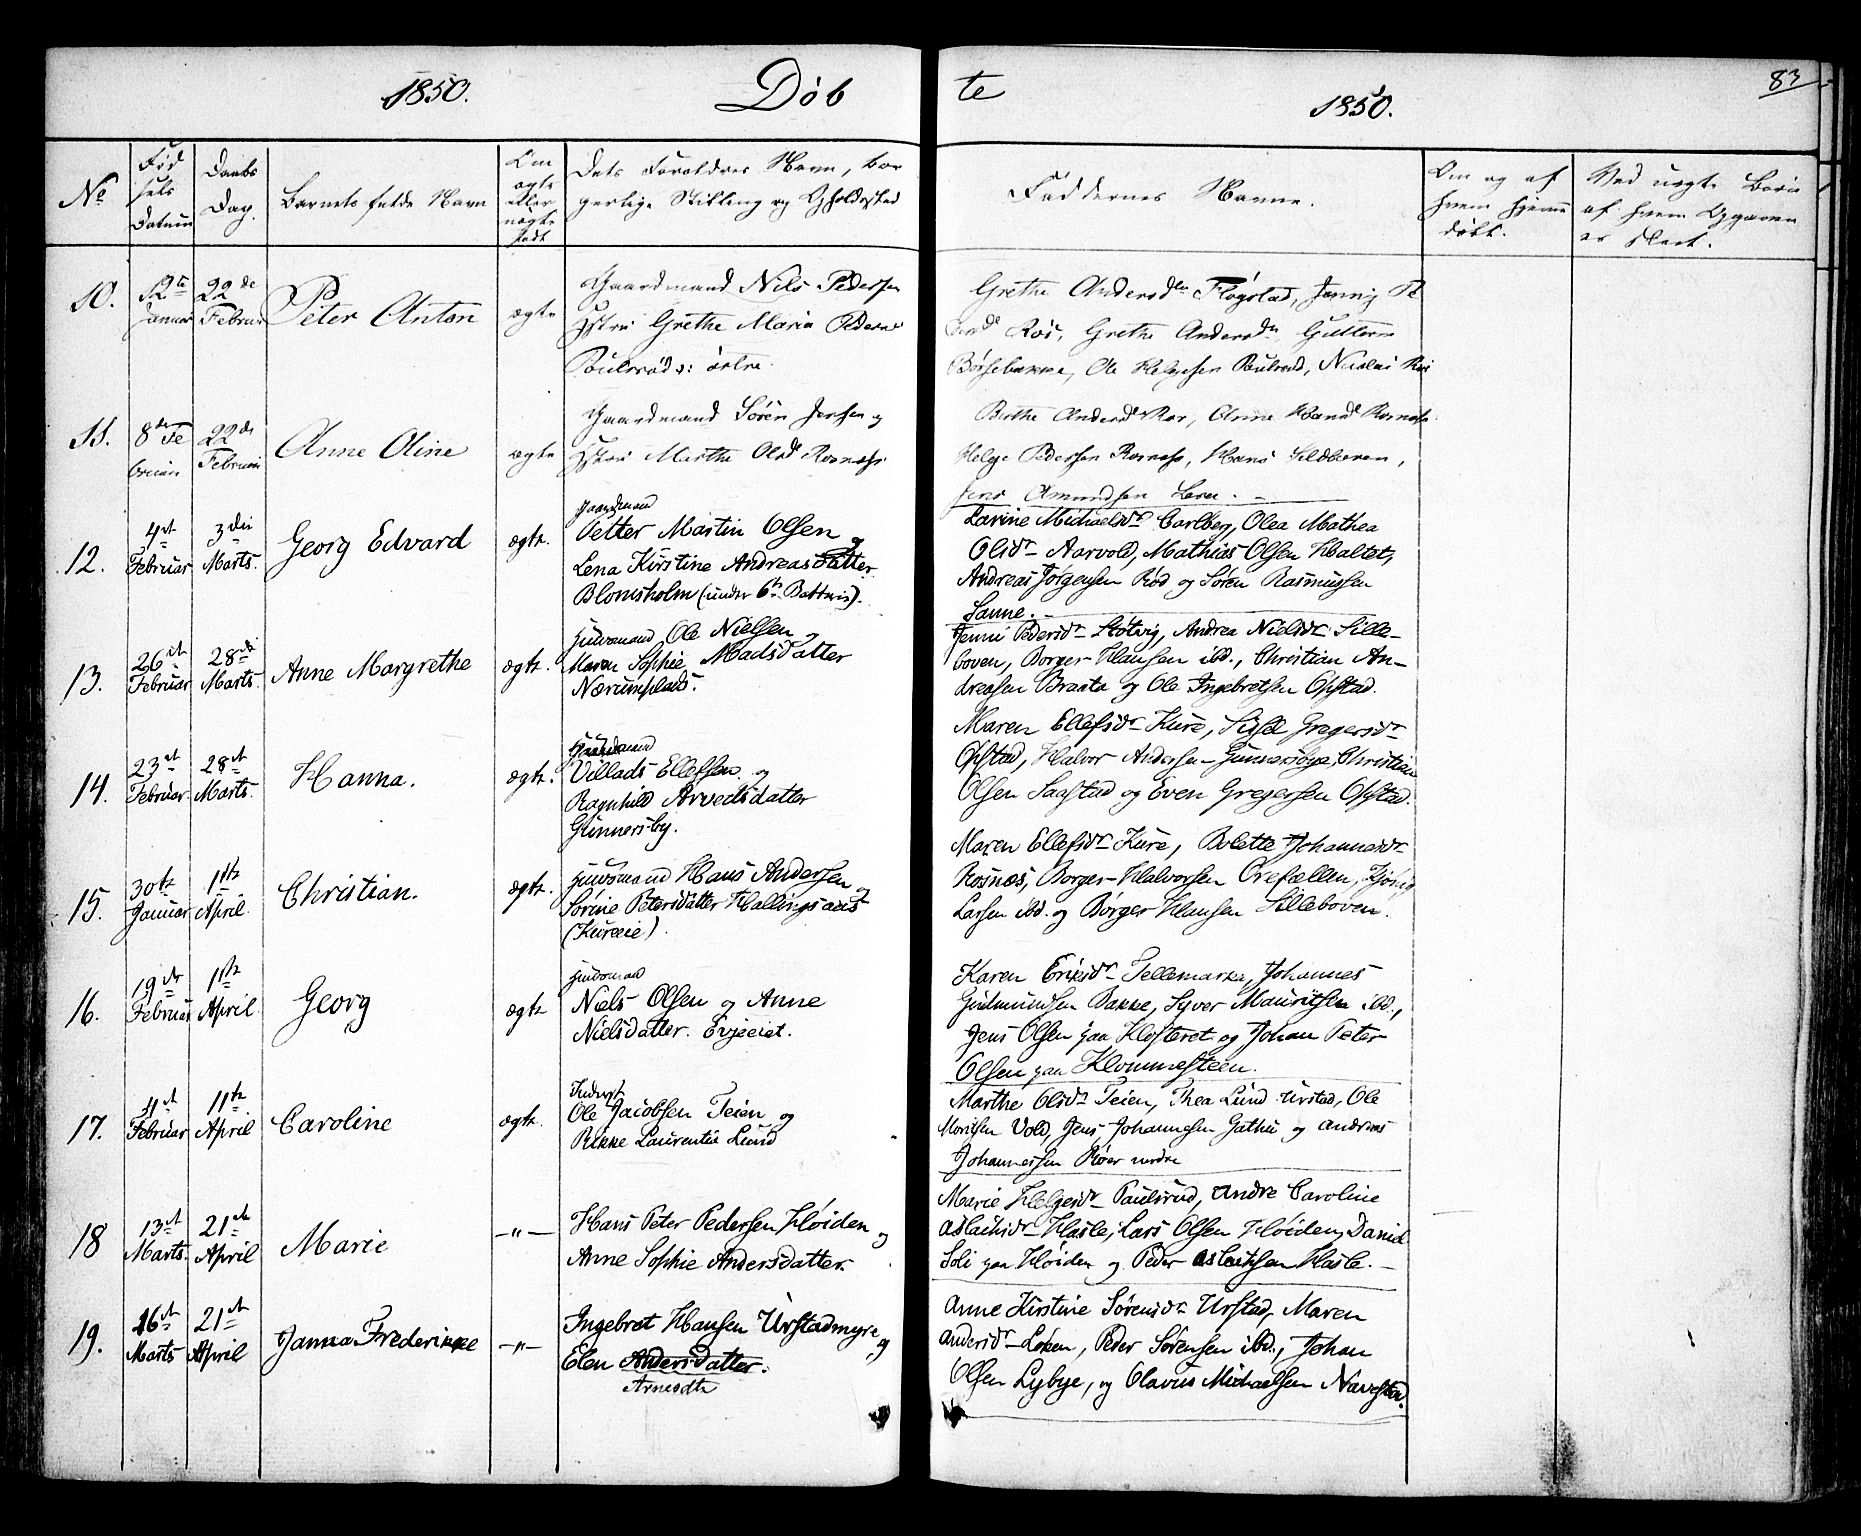 1850. Døb te 1850. 83
No
Fød
sels
Datum
Daabs
Dag.
Barnets fulde Navn
Om
ægte
eller
uægte
født
Dets Forældres Navn, bor
gerlige Stilling og Opholdssted
Faddernes Navne.
Om og af
hvem hjemme
døbt.
Ved uægte Børn
af hvem Opgaven
er skeet.
10. 12te Januar 22de Februar Peter Anton ægte
Gaardmand Nils Pedersen
Hstru Grethe Maria Peders
Poulsrød s: østre.
Grethe Andersdtr Flogstad, Jenny Pe
Grethe Andersdtr
Ole Helgesen Poulsrød, Nicolai
11. 8de Februar 22de Februar Anne Oline ægte
Gaardmand Søren Jensen og
Hstru Marthe Olsd Rosnæss
Birthe Andersd Roer, Anne Hansd Rosnæss
Helge Pedersen Rosnæss, Hans
Jens Amundsen
12. 4de Februar 3die Marts. Georg Edvard ægte.
Gaardmand
Petter Martin Olsen og
Lena Kirstine Andreasdatter
Blomsholm (under 6te Batterie).
Lavine Michaelsdr Carlberg, Olea Mathea
Olsdr Aarvold, Mathias Olsen Haltet,
Andreas Jørgensen Rød og Søren Rasmussen
Sanne.
13. 26de Februar 28de Marts. Anne Margrethe ægte.
Huusmand Ole Nielsen og
Maren Sophie Madsdatter
Nærumplads.
Jenni Pedersdr Støtvig, Andrea Nielsdr Sille-
boven, Borger Hansen ibd., Christian An-
dreasen Braata og Ole Ingebretsen Opstad.
14. 23de Februar 28de Marts. Hanna. ægte.
Huusmand
Villads Ellefsen og
Ragnhild Arvedsdatter
Gunnersby.
Maren Ellefsdr Kure, Sissel Gregersdr
Opstad, Halvor Andersen Gunnersbye, Christian
Olsen Saastad og Even Gregersen Opstad.
15. 30te Januar 1ste April. Christian. ægte.
Huusmand Hans Andersen og
Sorine Petersdatter Hallingsaas
(Kureeie).
Maren Ellefsdr Kure, Bolette Johannesdr
Rosnæs, Borger Halvorsen Orefaellen,
Larsen ibd. og Børger Hansen Silleboven.
16. 19de Februar 1ste April Georg ægte
Huusmand
Niels Olsen og Anne
Nielsdatter. Evjeeiet.
Karen Eriksdr Tellemarken, Johannes
Gudmundsen Bakke, Syver Mauritsen ibd.,
Jens Olsen paa Klosteret og Johan Peter
Olsen paa Klommesteen.
17. 4de Februar 11te April Caroline ægte.
Ole Jacobsen Teien og
Rikke Laurentia Lund
Marthe Olsdr Teien, Thea Lund Urstad, Ole
Vold, Jens Johannesen Gathu og Andreas
Johannessen Röer nordre
18 13de Marts. 21de April Marie —„—
Hans Peter Pedersen Høiden og
Anne Sophie Andersdatter.
Marie Helgesdr Paulsrud, Andre Caroline
Aslaksdr Hasle, Lars Olsen Høiden, Daniel
Soli paa Høiden og Peder Aslaksen Hasle.
19. 16de Marts 21de April Janna Frederikke —„—
Ingebret Hansen Urstadmyre og
Elen Andersdatter.
Arnesdtr
Anne Kirstine Sørensdr Urstad, Maren
Andersdr Løken, Peder Sørensen ibd., Johan
Olsen Lybye, og Olavus Michaelsen Navestad.